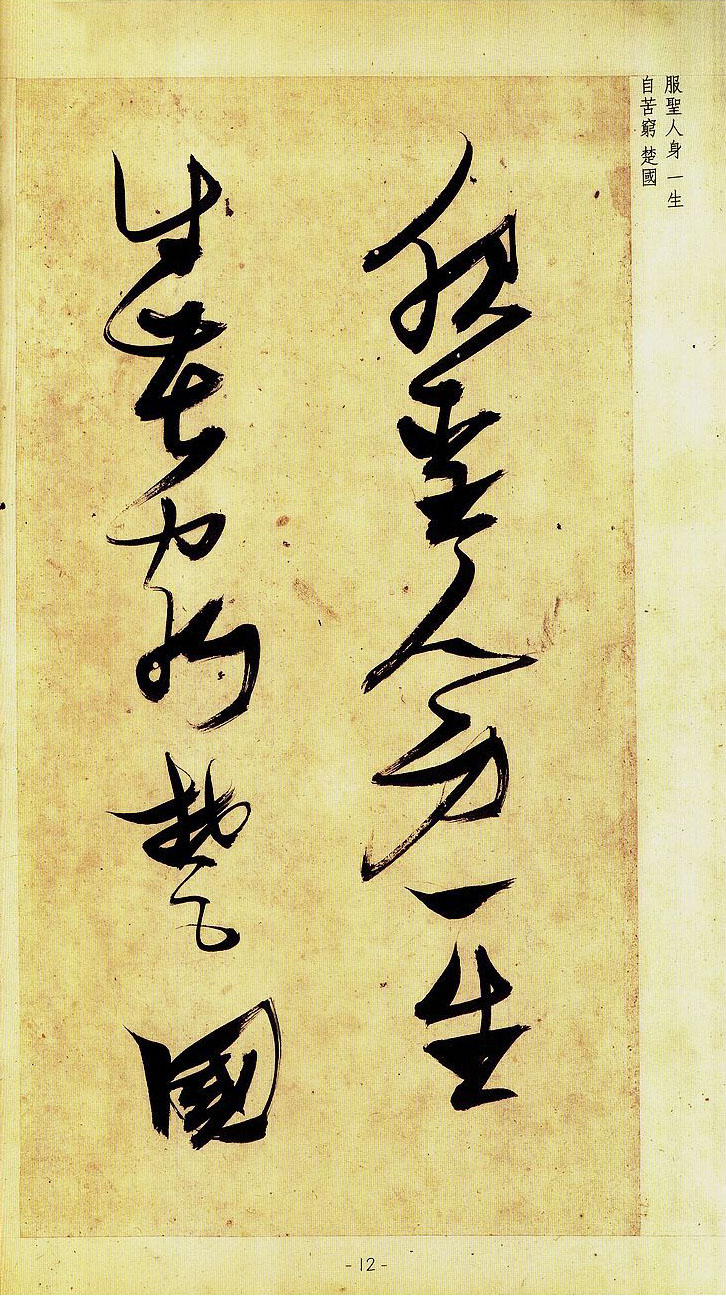 服聖人身一生
自苦窮楚國
服聖人身一生
自苦窮楚國
-12-